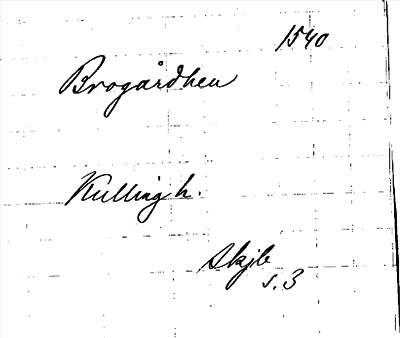 1540
Brogårdhen
Kulling h.
Skjb
s. 3